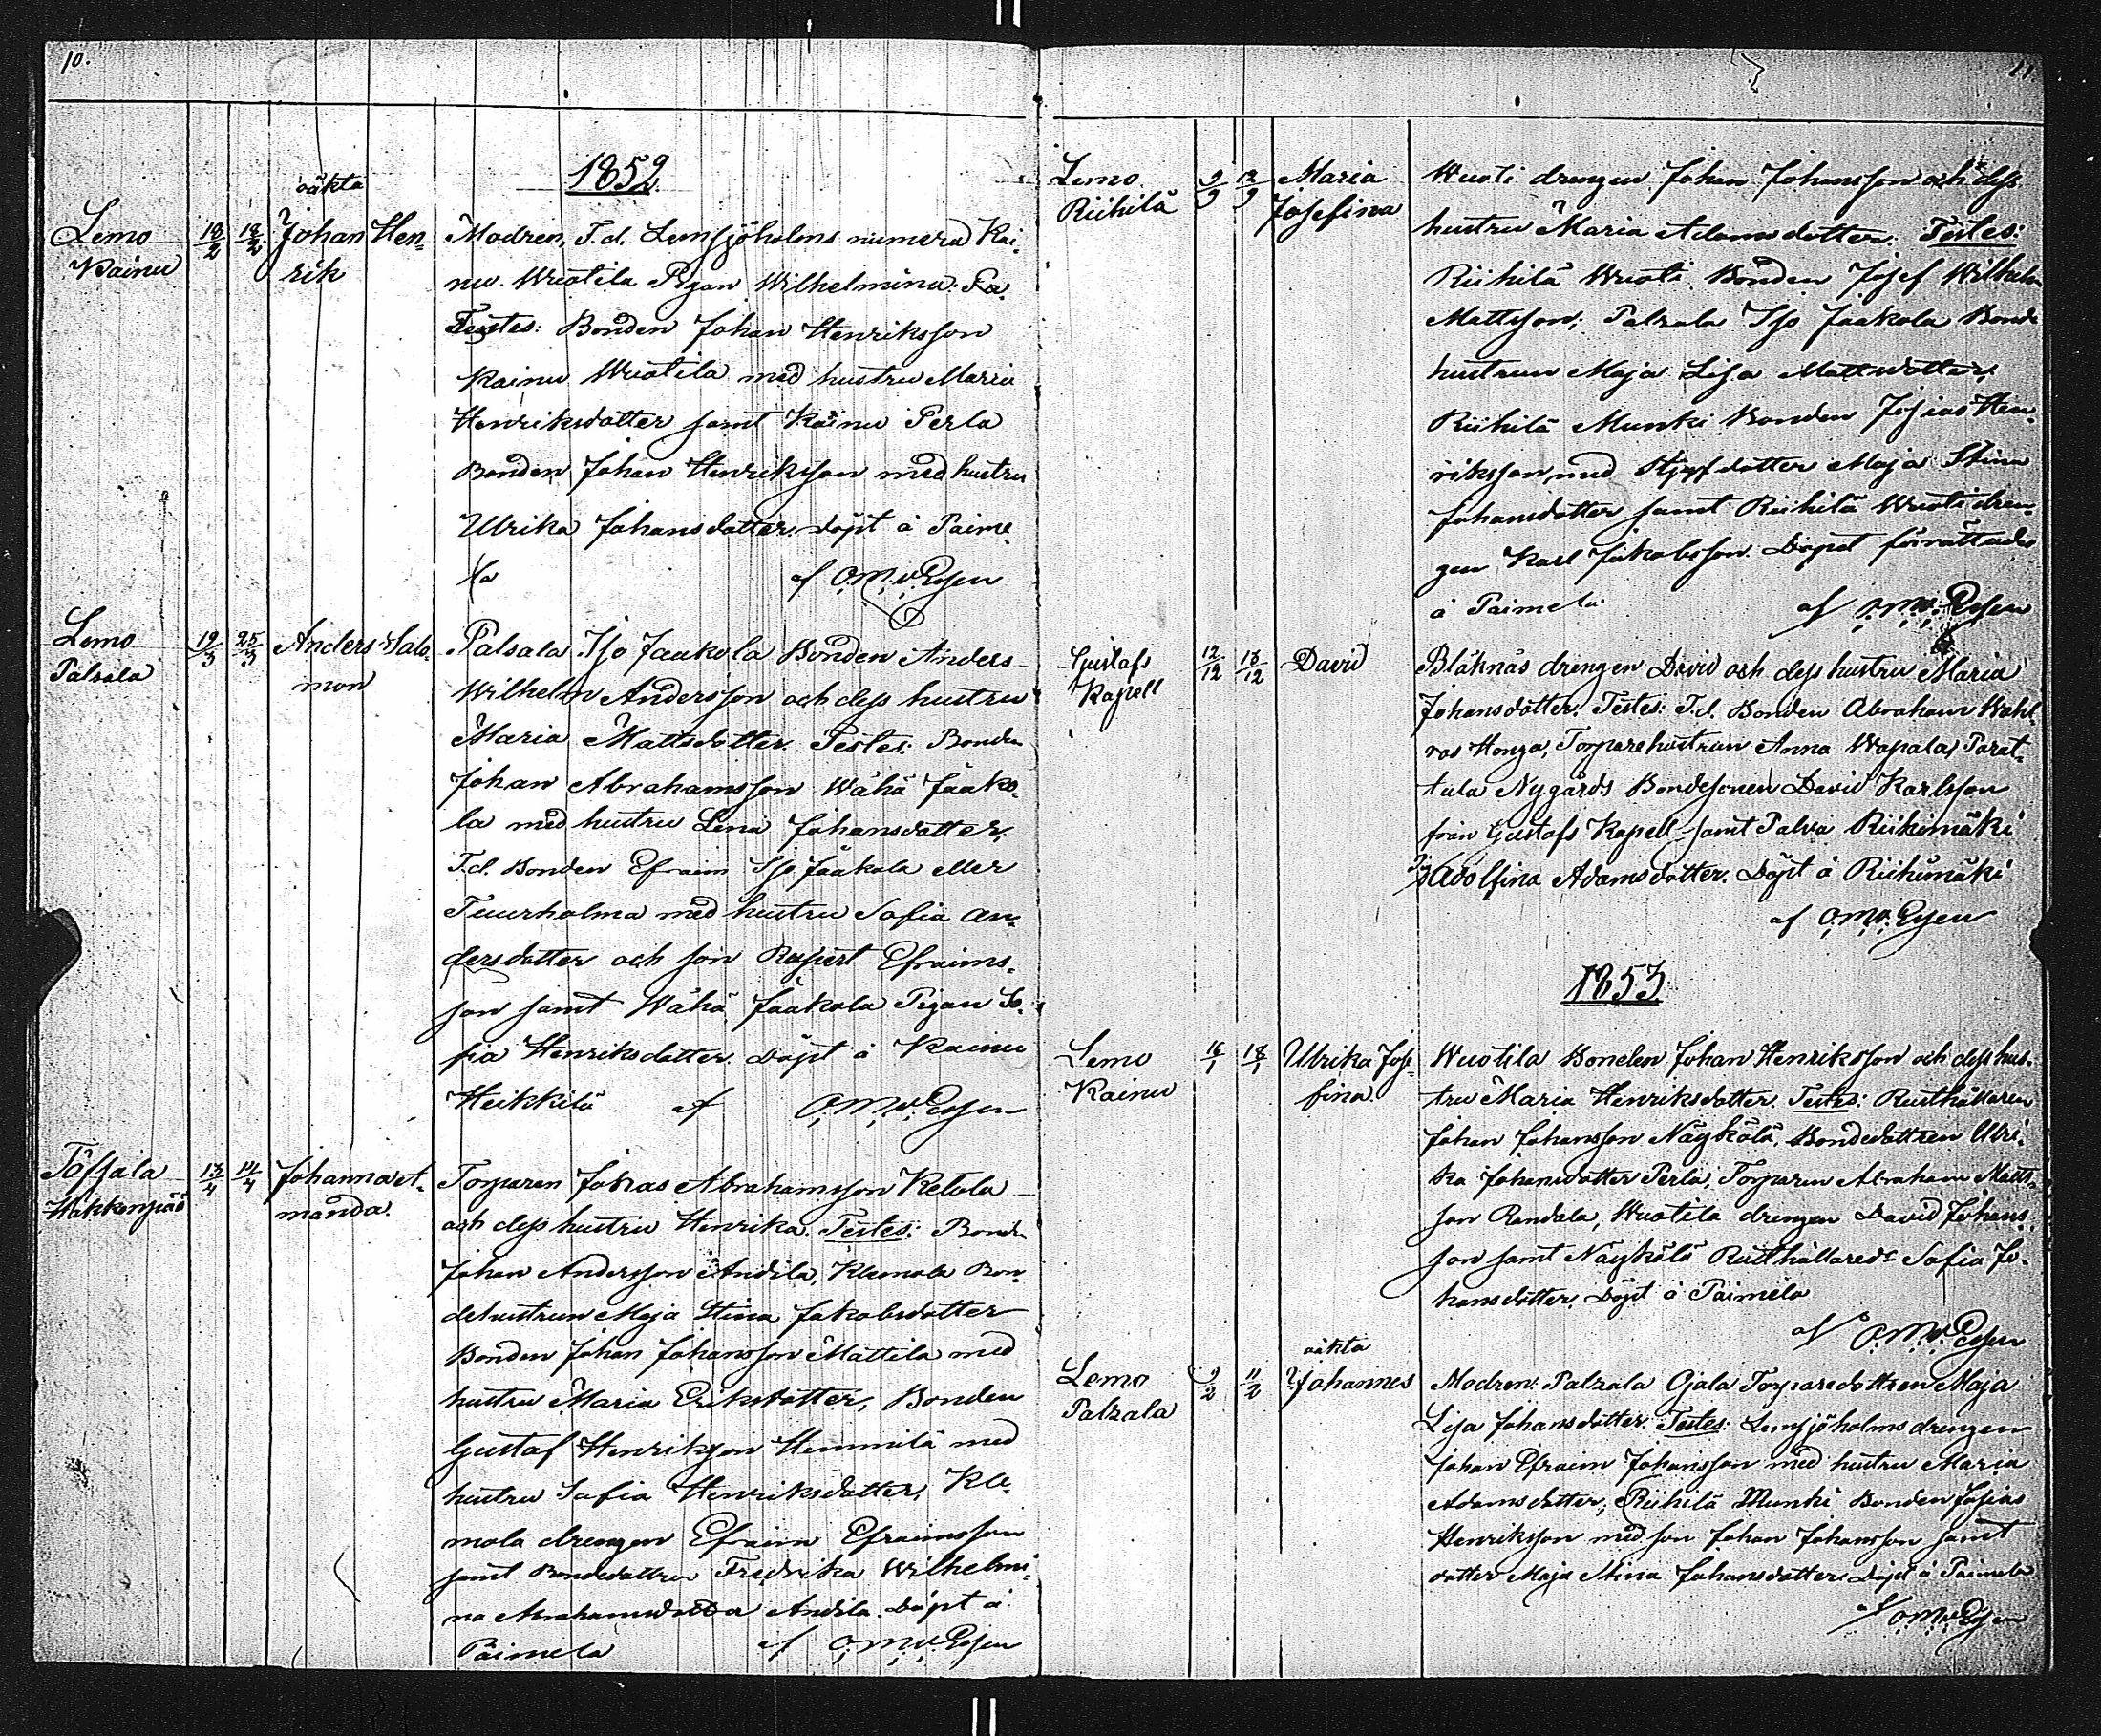 10.
1852.
Lemo
Kainu
18/2 18/2
oäkta
Johan Hen-
rik
Modren, T.d. Lemsjöholms numera Kai-
nu Wuotila Pigan Wilhelmina.
Testes: Bonden Johan Henriksson
Kainu Wuotila med hustru Maria
Henriksdotter samt Kainu Perla
Bonden Johan Henriksson med hustru
Ulrika Johansdotter. Döpt å Paime-
la af O.M.v.Essen
Lemo
Palsala
19/3 25/3
Anders Salo-
mon
Palsala Iso Jaakola Bonden Anders
Wilhelm Andersson och dess hustru
Maria Mattsdotter. Testes: Bonden
Johan Abrahamsson Wähä Jaako-
la med hustru Lena Johansdotter,
T.d. Bonden Efraim Iso Jaakola eller
Tuurholma med hustru Sofia An-
dersdotter och son Efraims-
son samt Wähä Jaakola Pigan So-
fia Henriksdotter. Döpt å Kainu
Heikkilä af O.M.v.Essen
Töfsala
Hakkenpää
13/4 14/4
Johanna A-
manda.
Torparen Abrahamsson Ketola
och dess hustru Henrika. Testes: Bonden
Johan Andersson Andila, Klemola Bon-
dehustrun Maja Stina Jakobsdotter
Bonden Johan Johansson Mattila med
hustru Maria Eriksdotter, Bonden
Gustaf Henriksson Hemmilä med
hustru Sofia Henriksdotter, Kle-
mola drengen Efraim Efraimsson
samt Bondedottren Fredrika Wilhelmi-
na Abrahamsdotter Andila. Döpt å
Paimela af O.M.v.Essen
11.
Lemo
Riihilä
9/9 12/9
Maria
Josefina
Wuoti drengen Johan Johansson och dess
hustru Maria Adamsdotter. Testes:
Riihilä Wuoti Bonden Josef Wilhelm
Mattsson; Palsala Iso Jaakola Bonde
hustrun Maja Lisa Mattsdotter,
Riihilä Munki Bonden Josias Hen-
riksson med Styfdotter Maja Stina
Johansdotter samt Riihilä Wuoti dren-
gen Karl Jakobsson. Döpet förrättades
å Paimela af O.M.v.Essen
Gustafs
Kapell
12/12 13/12
David
Blåknäs drengen David och dess hustru Maria
Johansdotter. Testes: T.d. Bonden Abraham Wahl-
ros Honga, Torparehustrun Anna Wapala, Parat-
tula Nygårds Bondesonen David Karlsson
från Gustafs Kapell samt Palva Riihimäki
Adolfina Adamsdotter. Döpt å Riihimäki
af O.M.v.Essen
1853.
Lemo
Kainu
16/1 18/1
Ulrika Jose-
fina.
Wuotila Bonden Johan Henriksson och dess hus-
tru Maria Henriksdotter. Testes: Rusthållaren
Johan Johansson Näykölä, Bondedottren Ulri-
ka Johansdotter Perla, Torparen Abraham Matts-
son Randala, Wuotila drengen David Johans-
son samt Näykölä Rusthållared. Sofia Jo-
hansdotter. Döpt å Paimela
af O.M.v.Essen
Lemo
Palsala
9/2 11/2
oäkta
Johannes
Modren: Palsala Ojala Torparedottren Maja
Lisa Johansdotter. Testes: Lemsjöholms drengen
Johan Efraim Johansson med hustru Maria
Adamsdotter; Riihilä Munki Bonden Josias
Henriksson med son Johan Johansson samt
dotter Maja Stina Johansdotter. Döpt å Paimela
af O.M.v.Essen